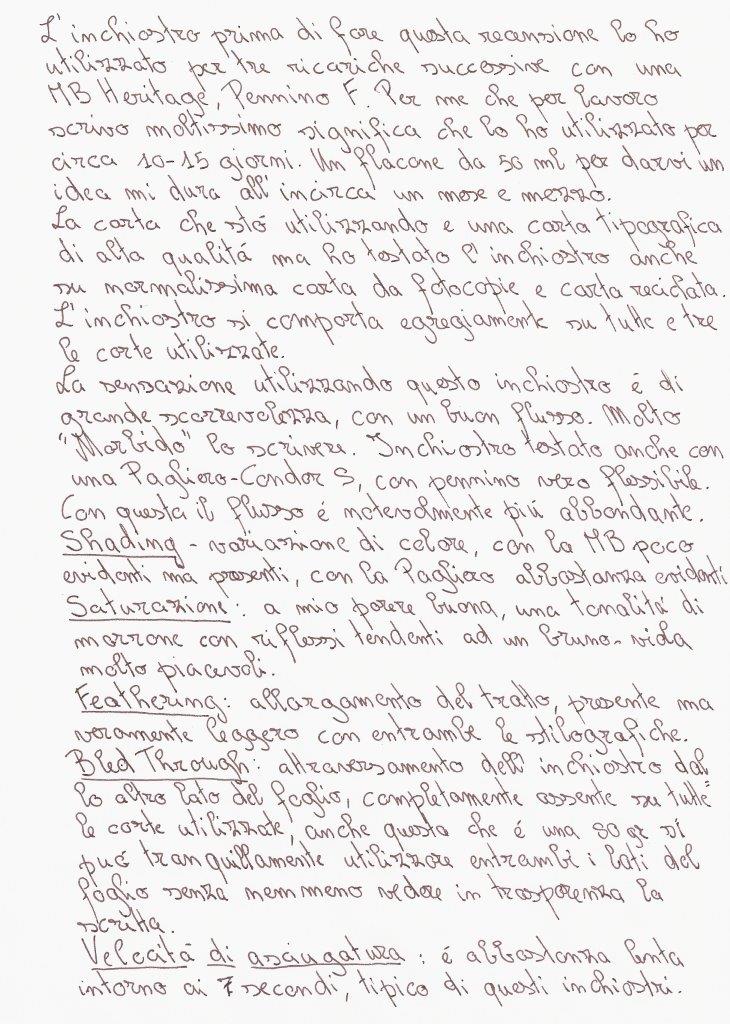 L'inchiostro prima di fare questa recensione lo ho
utilizzato per tre ricariche successive con una
MB Heritage, Pennino F. Per me che per lavoro
scrivo moltissimo significa che lo ho utilizzato per
circa 10-15 giorni. Un flacone da 50 ml per darvi un
idea mi dura all'incirca un mese e mezzo.
La carta che stó utilizzando e una carta tipografica
di alta qualitá ma ho testato l'inchiostro anche
su normalissima carta da fotocopie e carta reciclata.
L'inchiostro si comporta egregiamente su tutte e tre
le carte utilizzate.
La sensazione utilizzando questo inchiostro é di
grande scorrevolezza, con un buon flusso. Molto
"Morbido" lo scrivere. Inchiostro testato anche con
una Pagliero-Condor S, con pennino vero flessibile.
Con questa il flusso é notevolmente piú abbondante.
Shading - variazione di colore, con la MB poco
evidenti ma presenti, con la Pagliero abbastanza evidenti
Saturazione: a mio parere buona, una tonalitá di
marrone con riflessi tendenti ad un bruno-viola
molto piacevoli.
Feathering: allargamento del tratto, presente ma
veramente leggero con entrambe le stilografiche.
Bled Through: attraversamento dell'inchiostro dal
lo altro lato del foglio, completamente assente su tutte
le carte utilizzate, anche questa che é una 80 gr si
puó tranquillamente utilizzare entrambi i lati del
foglio senza nemmeno vedere in trasparenza la
scritta.
Velocitá di asciugatura: é abbastanza lenta
intorno ai 7 secondi, tipico di questi inchiostri.